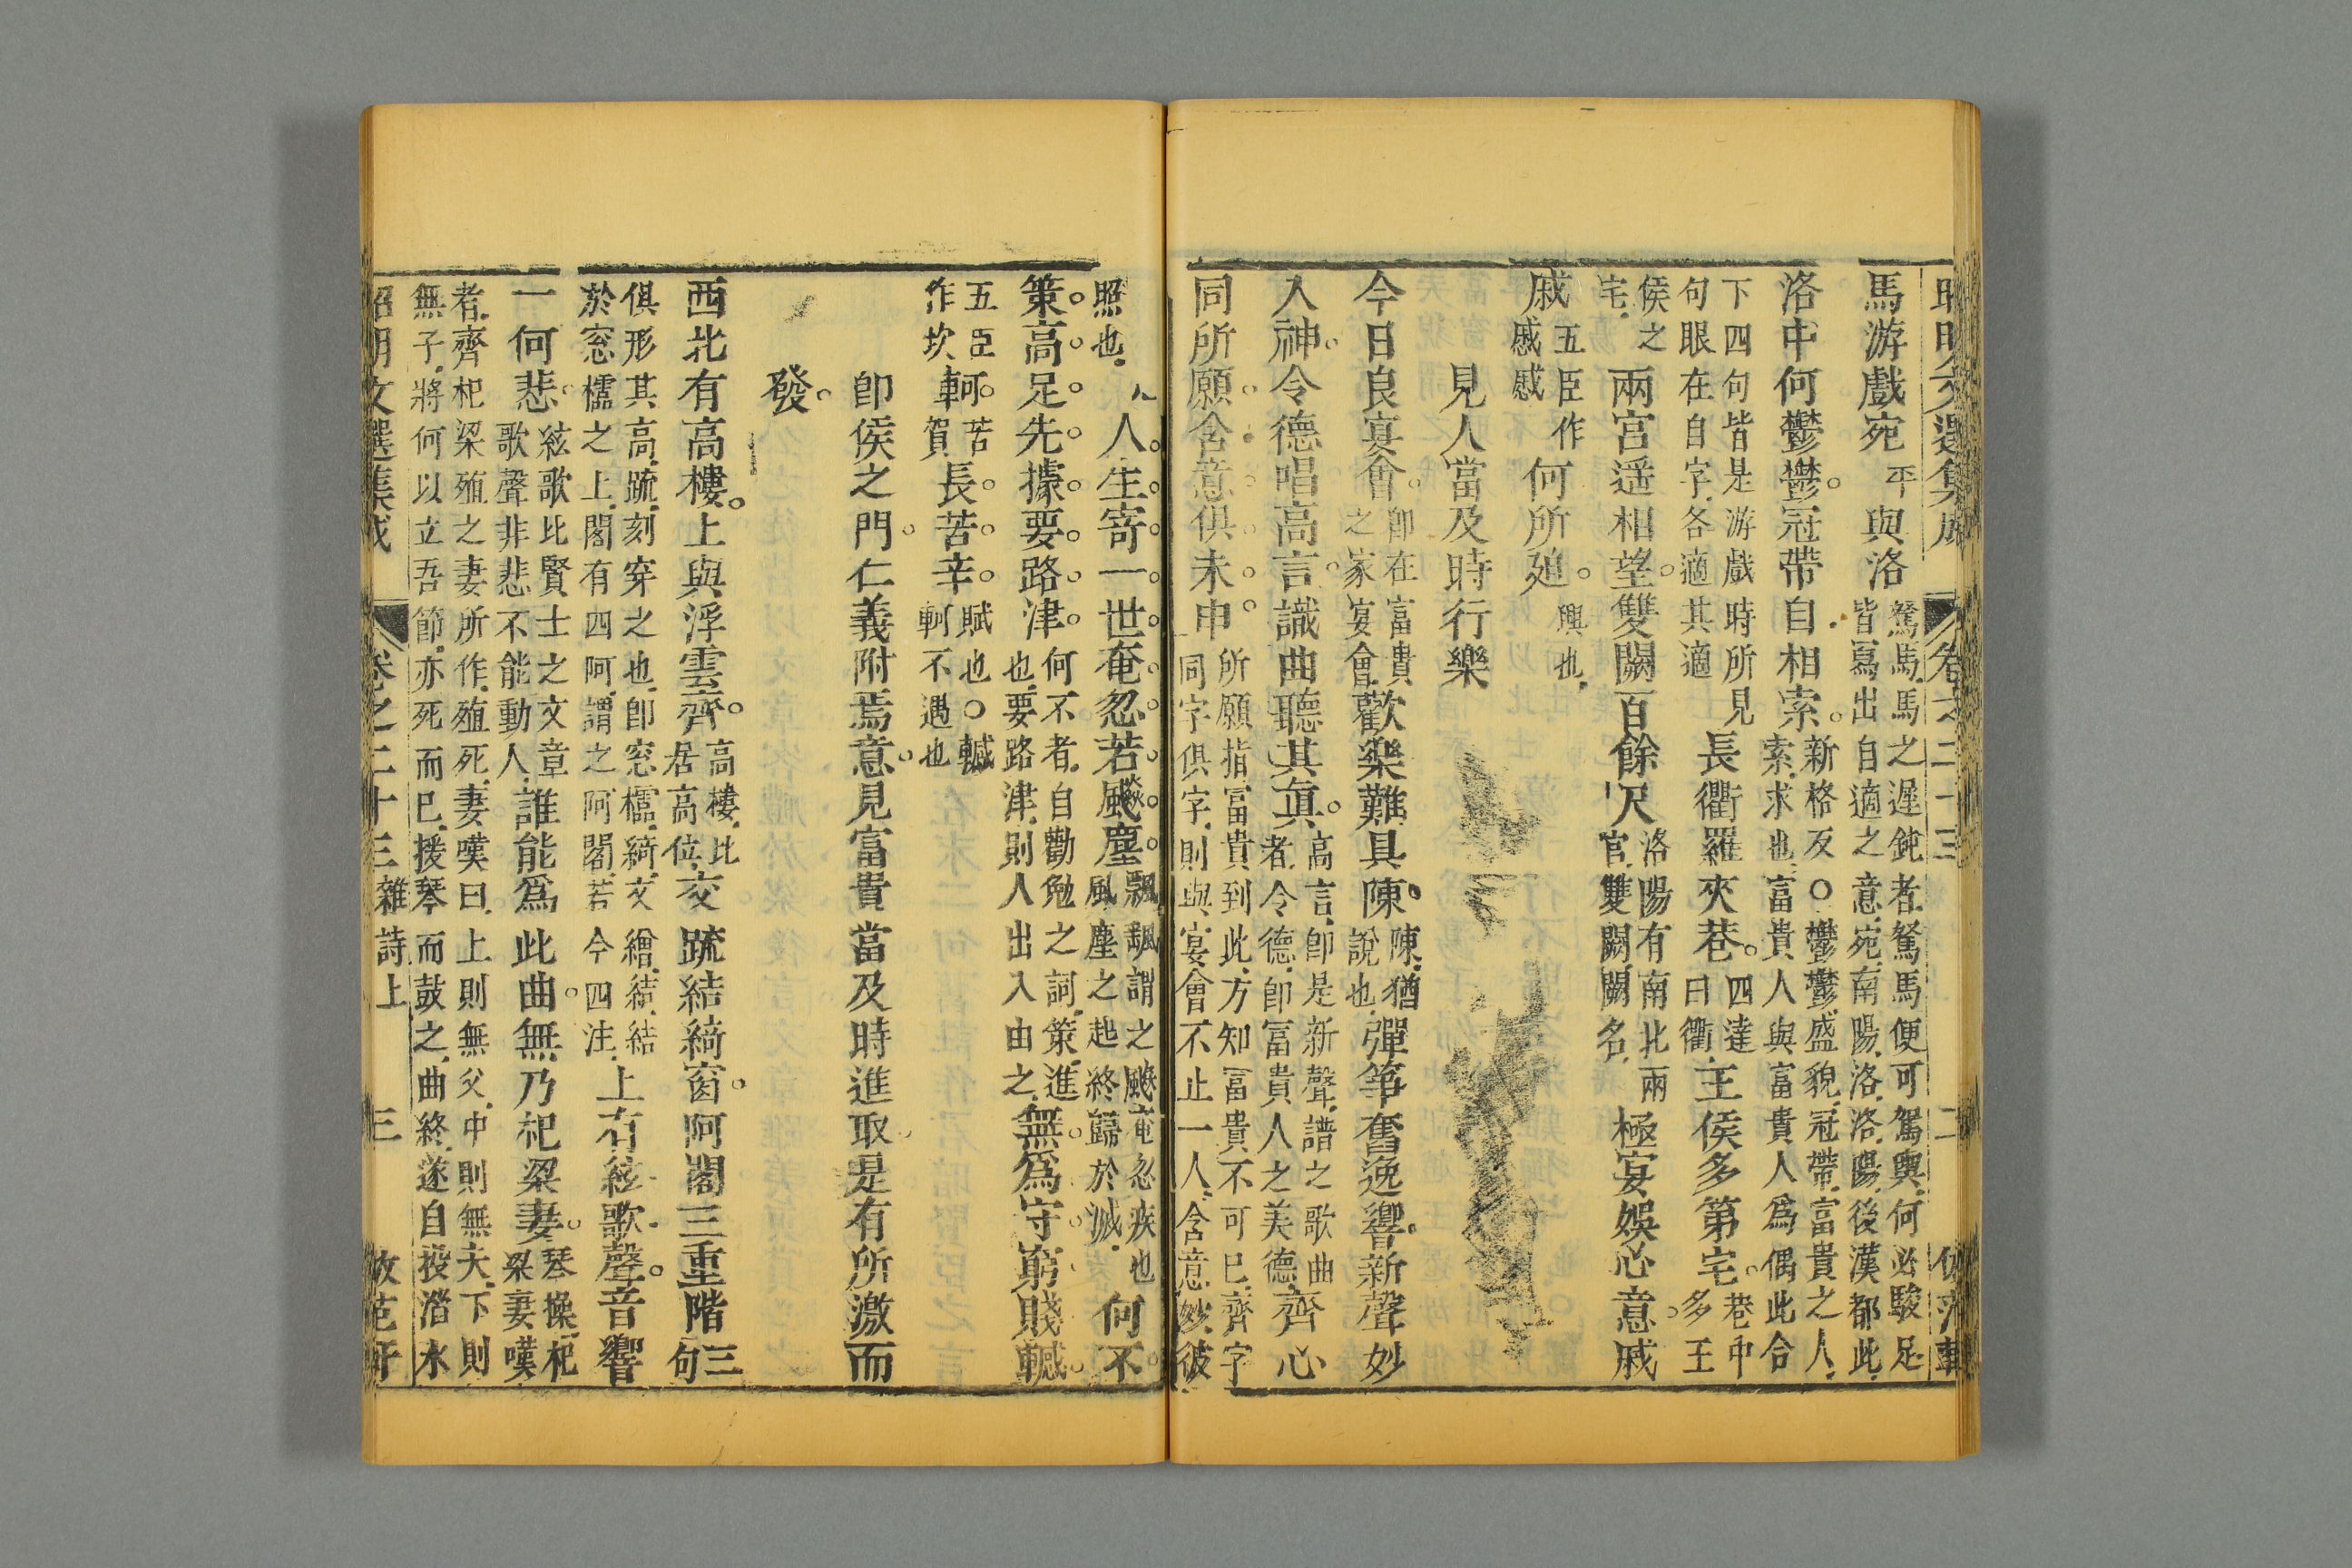 昭明文選集成 卷之二十三 二
馬游戲宛平與洛駑馬馬之遲鈍者駑馬便可駕與何必駿足皆寫出自適之意宛南陽洛洛陽後漢都此
洛中何鬱鬱冠帶自相索新格反○鬱鬱盛貌冠帶富貴之人索求也富貴人與富貴人爲偶此合
下四句皆是游戲時所見句眼在自字各適其適長衢羅夾巷四達曰衢王侯多第宅巷中多王
侯之宅兩宮遥相望雙闕百餘尺洛陽有南北兩宮雙闕闕名極宴娛心意戚
戚五臣作慼慼何所廹興也
見人當及時行樂
今日良宴會卽在富貴之家宴會歡樂難具陳陳猶說也彈筝奮逸響新聲妙
入神令德唱高言識曲聽其眞高言卽是新聲譜之歌曲者令德卽富貴人之美德齊心
同所願含意俱未申所願指富貴到此方知富貴不可已齊字同字俱字則與宴會不止一人含意妙彼
照也人生寄一世奄忽若飈塵飄颻謂之飈奄忽疾也風塵之起終歸於滅何不
策高足先據要路津何不者自勸勉之詞策進也要路津則人出入由之無爲守窮賤轗
五臣作坎軻苦賀長苦辛賦也○轗軻不遇也
卽侯之門仁義附焉意見富貴當及時進取是有所激而
發
西北有高樓上與浮雲齊高樓比居高位交疏結綺窗阿閣三重階三句
俱形其高疏刻穿之也卽窓櫺綺文繒結結於窓櫺之上閣有四阿謂之阿閣若今四注上有絃歌聲音響
一何悲絃歌比賢士之文章歌聲非悲不能動人誰能爲此曲無乃杞梁妻琴操杞梁妻嘆
者齊杞梁殖之妻所作殖死妻嘆曰上則無父中則無夫下則無子將何以立吾節亦死而已援琴而鼓之曲終遂自投淄水
昭明文選集成 卷之二十三雜詩上 三